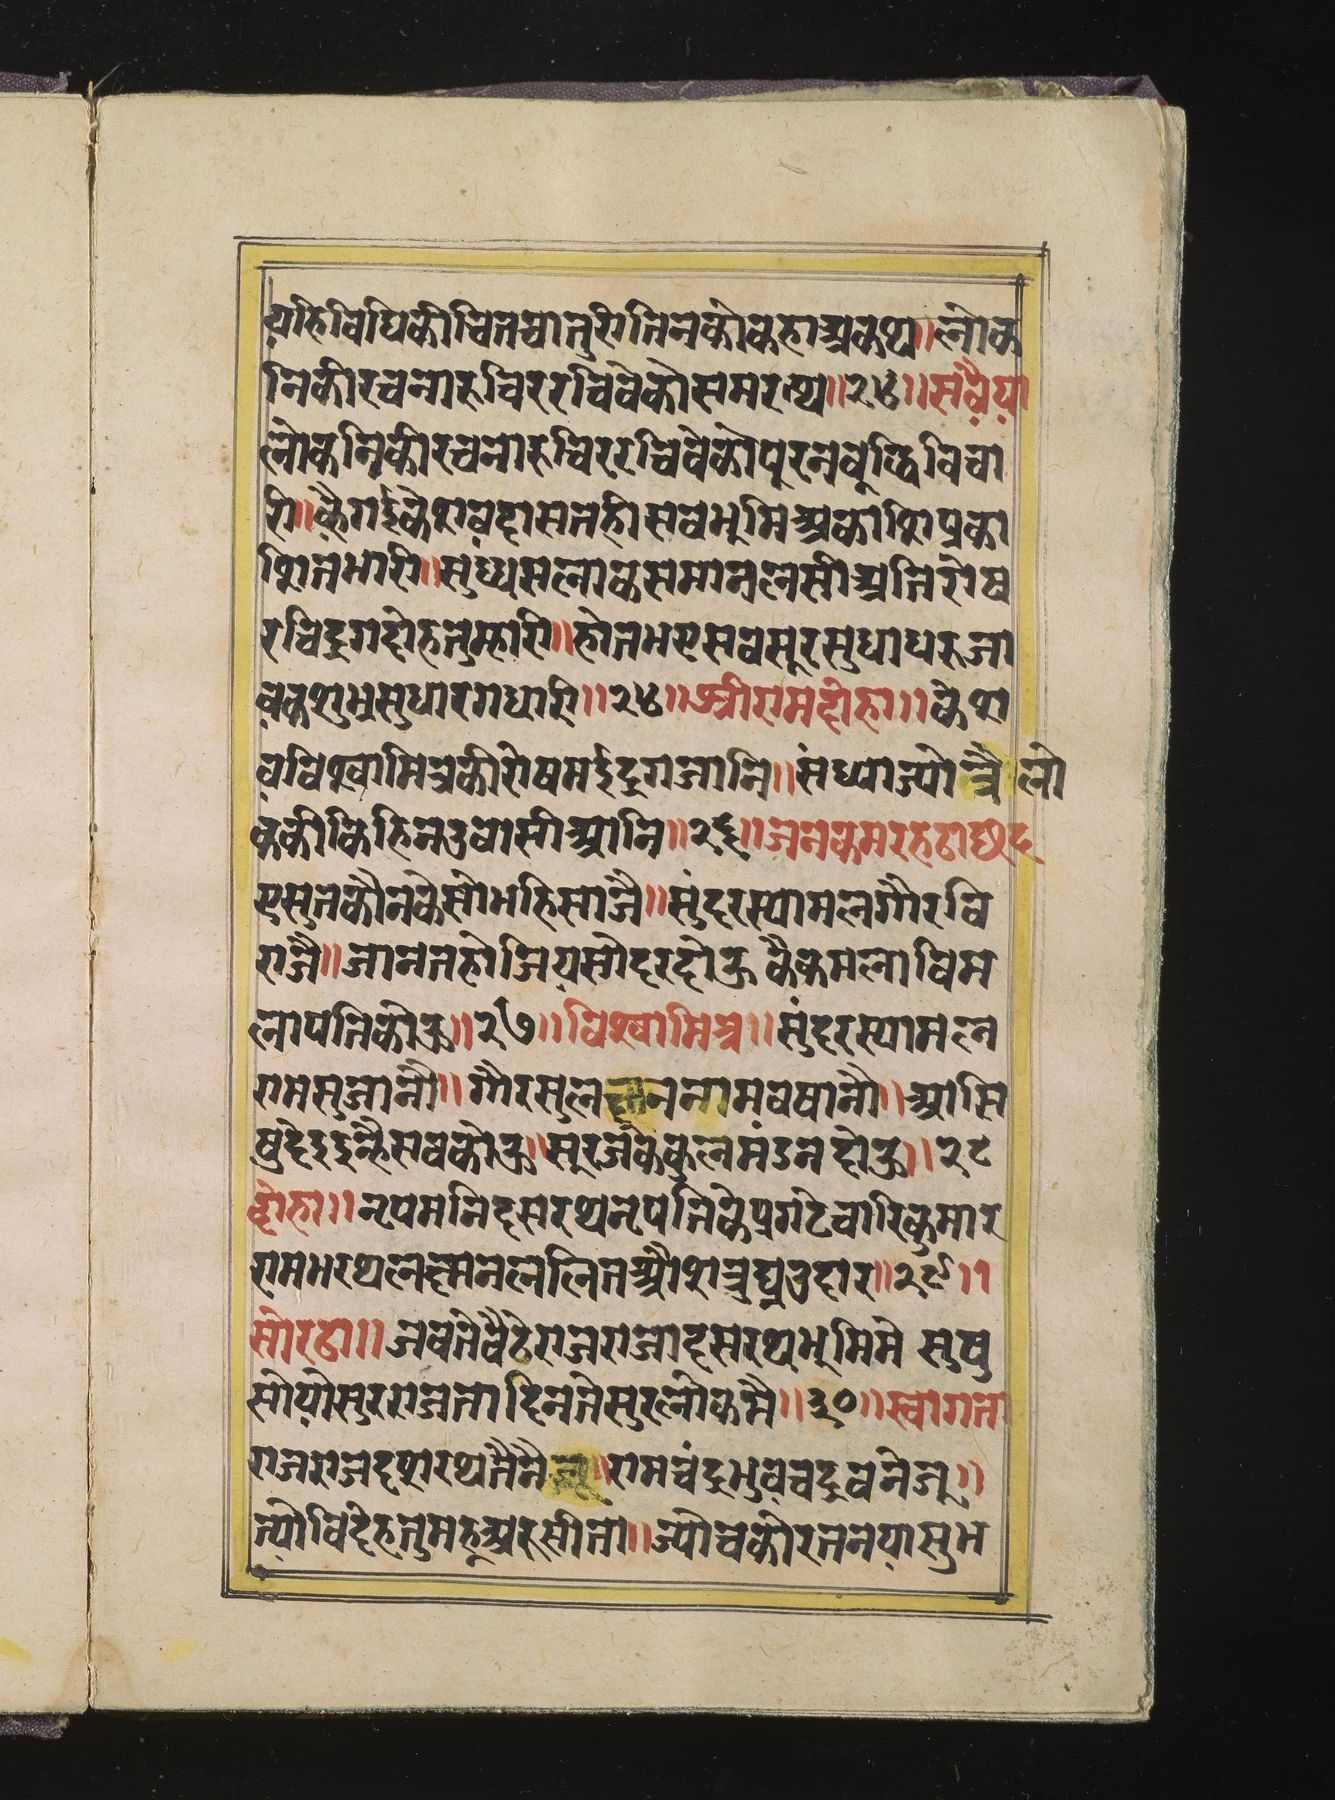 यहिविधिकीचितचातुरीतिनकोकहाअकथ॥लोक
निकीरचनारुचिररचिवेकोसमरत्थ॥२४॥सवैया
लोकनिकीरचनारुचिररचिवेकोपूरनबुद्धिविचा
री॥कैगईकेशवदासतहीसबभूमिअकाशप्रका
शितभारी॥सुध्धसलाकसमानलसीअतिरोष
रचिदृगदीहतुम्हारी॥होतभएसबसूरसुधाधरजा
वकशुभ्रसुधारगधारी॥२४॥श्रीरामदोहा॥केश
वविश्वामित्रकीरोषमईदृगजानि॥संध्याज्योत्रैलो
ककीकिहिनउवासीआनि॥२६॥जनकमरहठाछंद
एसुतकौनकेसोभहिसाजै॥सुंदरस्यामलगौरवि
राजै॥जानतहोजियसोदरदोऊकैकमलाविम
लापतिकोऊ॥२७॥विश्वामित्र॥सुंदरस्यामल
रामसुजानौ॥गौरसुलछननामवषानौ॥आसि
षदेहुइन्हैसबकोऊ॥सूरजकेकुलमंडनदोऊ॥२८
दोहा॥नृपमनिदसरथनृपतिकेप्रगटेचारिकुमार
रामभरथलछमनललितऔशत्रुघ्नउदार॥२९॥
सोरठा॥जबतेबैठेराजराजादसरथभूमिमे सुष
सोयोसुरराजतादिनतेसुरलोकमै॥३०॥स्वागता
राजराजदशरथतनैजू॥रामचंद्रभुवचंद्रबनेजू॥
त्योविदेहतुमहूअरुसीता॥ज्योचकोरतनयासुभ